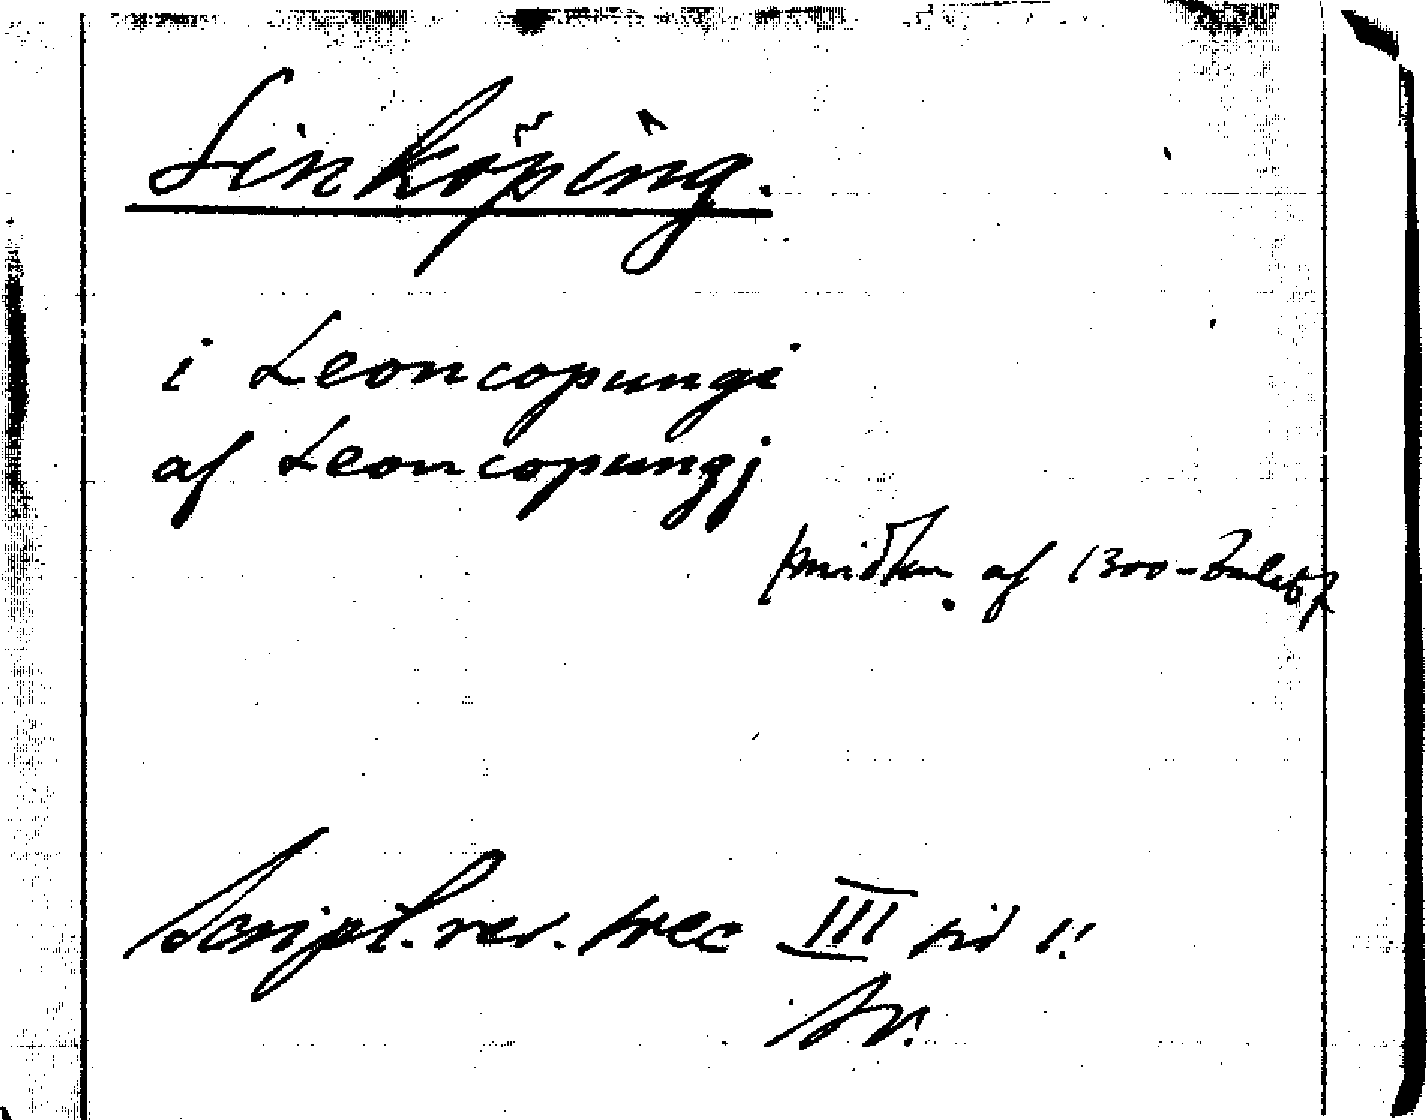 Linköping.
i Leoncopungi
af Leoncopungj
midten af 1300-talet
Script. rer. svec III sid 1: